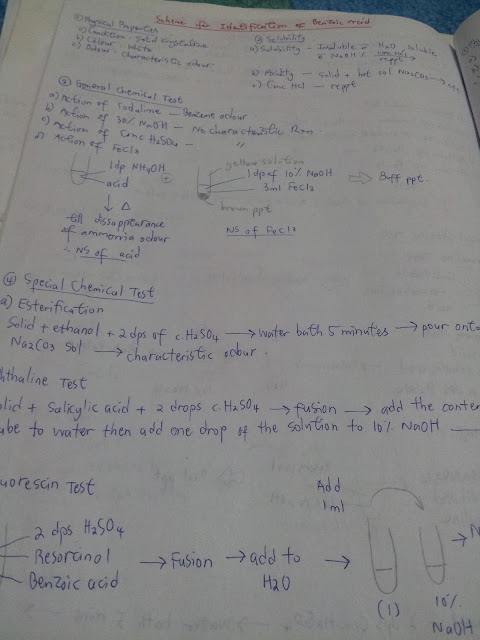 Scheme for Identification of Benzoic acid
① Physical Properties
a) Condition - Solid crystalline
b) Colour - white
c) Odour - Characteristic odour
a) Solubility - Insoluble H2O, soluble
NaOH
reppt
b) Acidity - Solid + hot sol Na2CO3 →
c) Conc HCl - reppt
③ General Chemical Test
a) Action of Sodalime - Benzene odour
b) Action of 30% NaOH - No characteristic Rxn.
c) Action of Conc H2SO4 - "
d) Action of FeCl3
1dp NH4OH
acid
↓ Δ
till dissappearance
of ammonia odour
∴ NS of acid
+
yellow solution
1dp of 10% NaOH
3ml FeCl3
brown ppt
NS of FeCl3
⇒ Buff ppt.
④ Special Chemical Test
a) Esterification
Solid + ethanol + 2dps of c.H2SO4 → water bath 5 minutes → pour onto
Na2CO3 sol → characteristic odour.
hthaline Test
olid + Salicylic acid + 2 drops c.H2SO4 → fusion → add the conten
ube to water then add one drop of the solution to 10% NaOH
uorescin Test
2 dps H2SO4
Resorcinol
Benzoic acid
→ Fusion → add to
H2O
→
Add
1ml
(1)
10%
NaOH